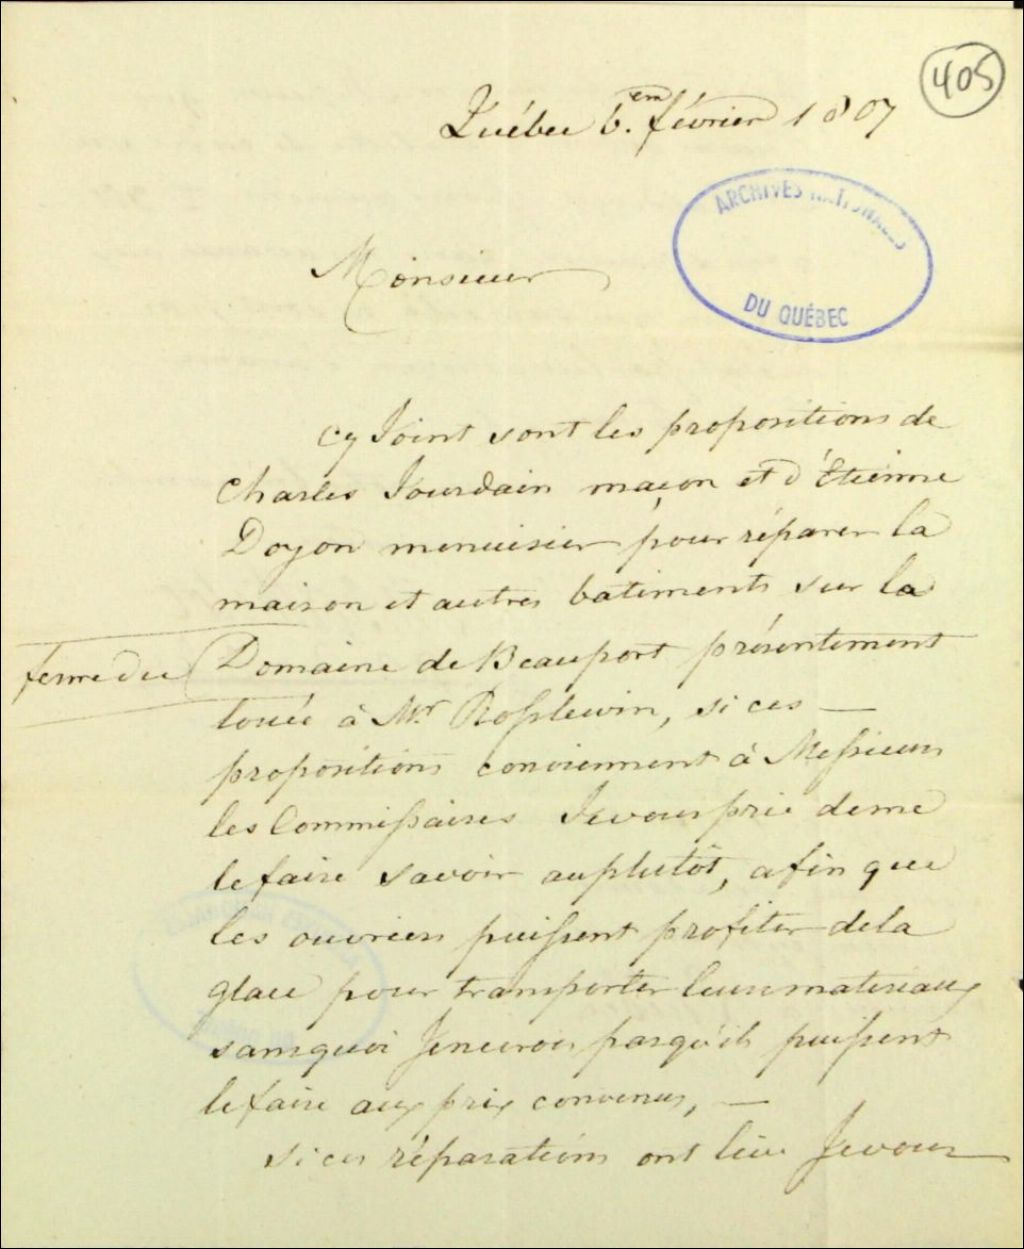 405
Québec 6.em février 1807
ARCHIVES NATIONALES
DU QUÉBEC
Monsieur
Cy Joint sont les propositions de
Charles Jourdain maçon et d'Etienne
Doyon menuisier pour réparer la
maison et autres batiments sur la
ferme du
Domaine de Beauport présentement
louée à Mr. Rosslewin, si ces —
propositions conviennent à Messieurs
les Commissaires Je vous prie de me
le faire savoir au plutôt, afin que
les ouvriers puissent profiter de la
glace pour transporter leurs materiaux
sans quoi Je ne crois pas qu'ils puissent
le faire aux prix convenus, —
si ces réparations ont lieu Je vous